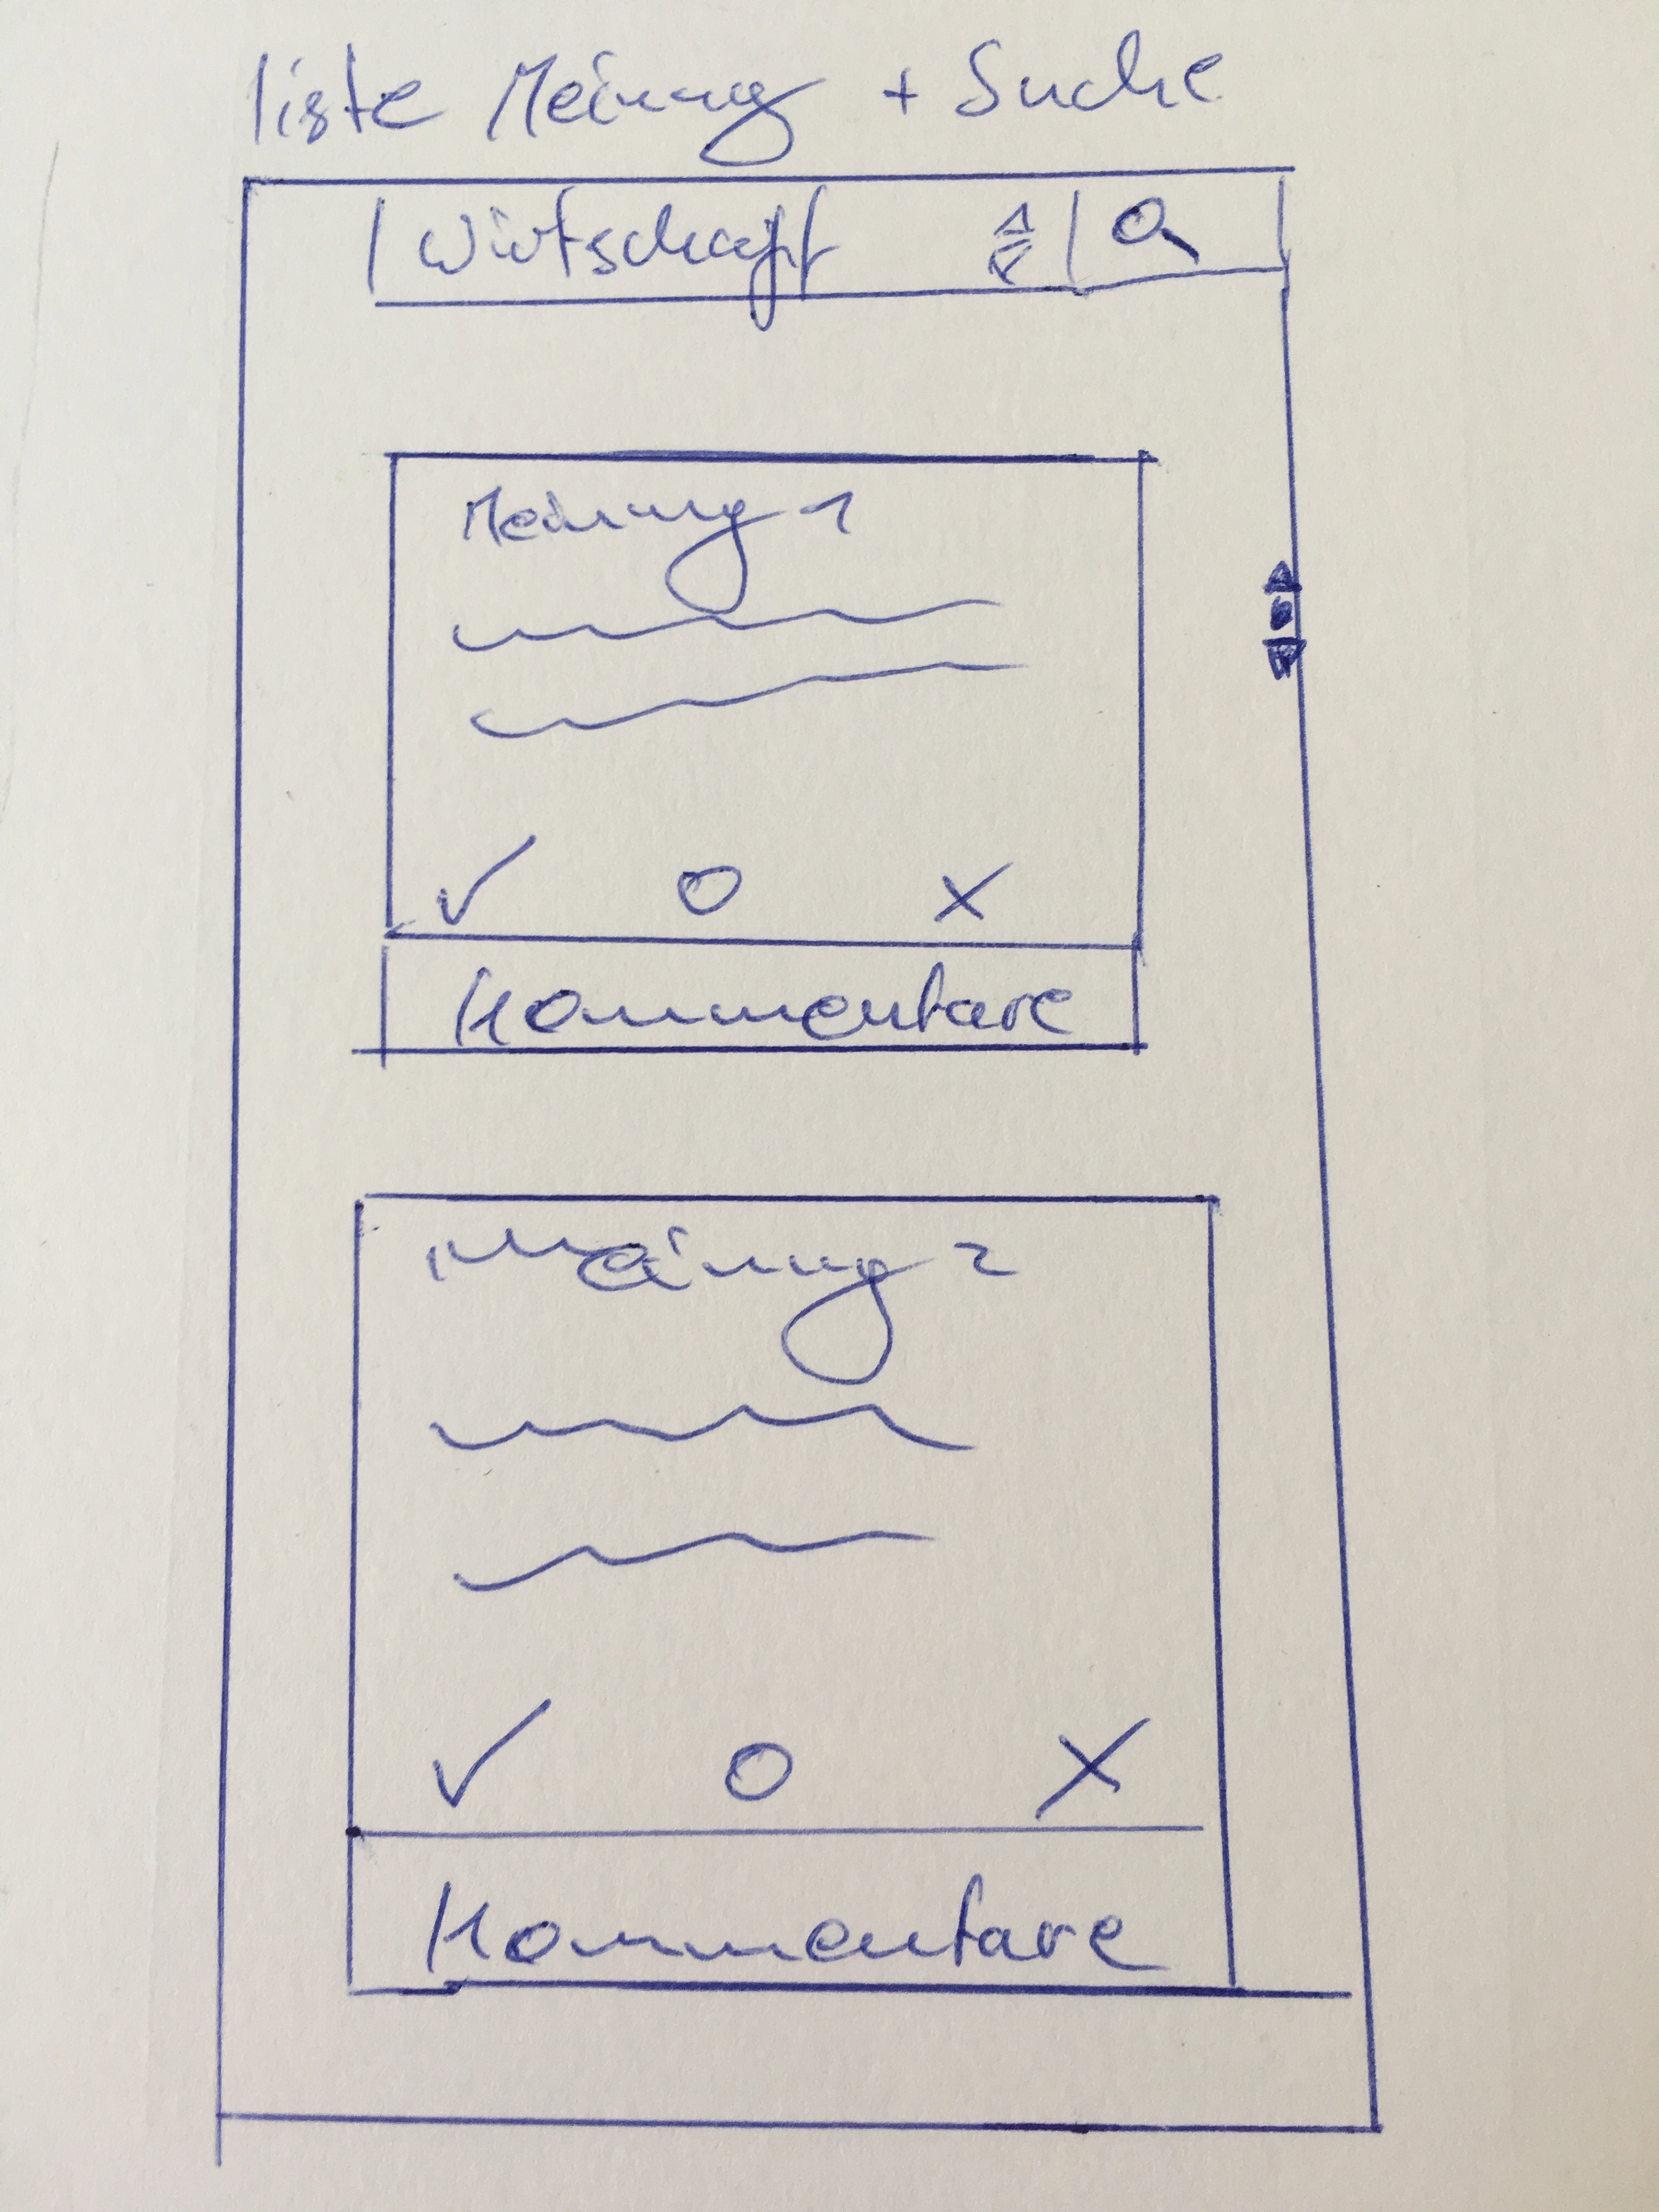 liste Meinung + Suche
Wirtschaft
Meinung 1
Kommentare
Meinung 2
Kommentare